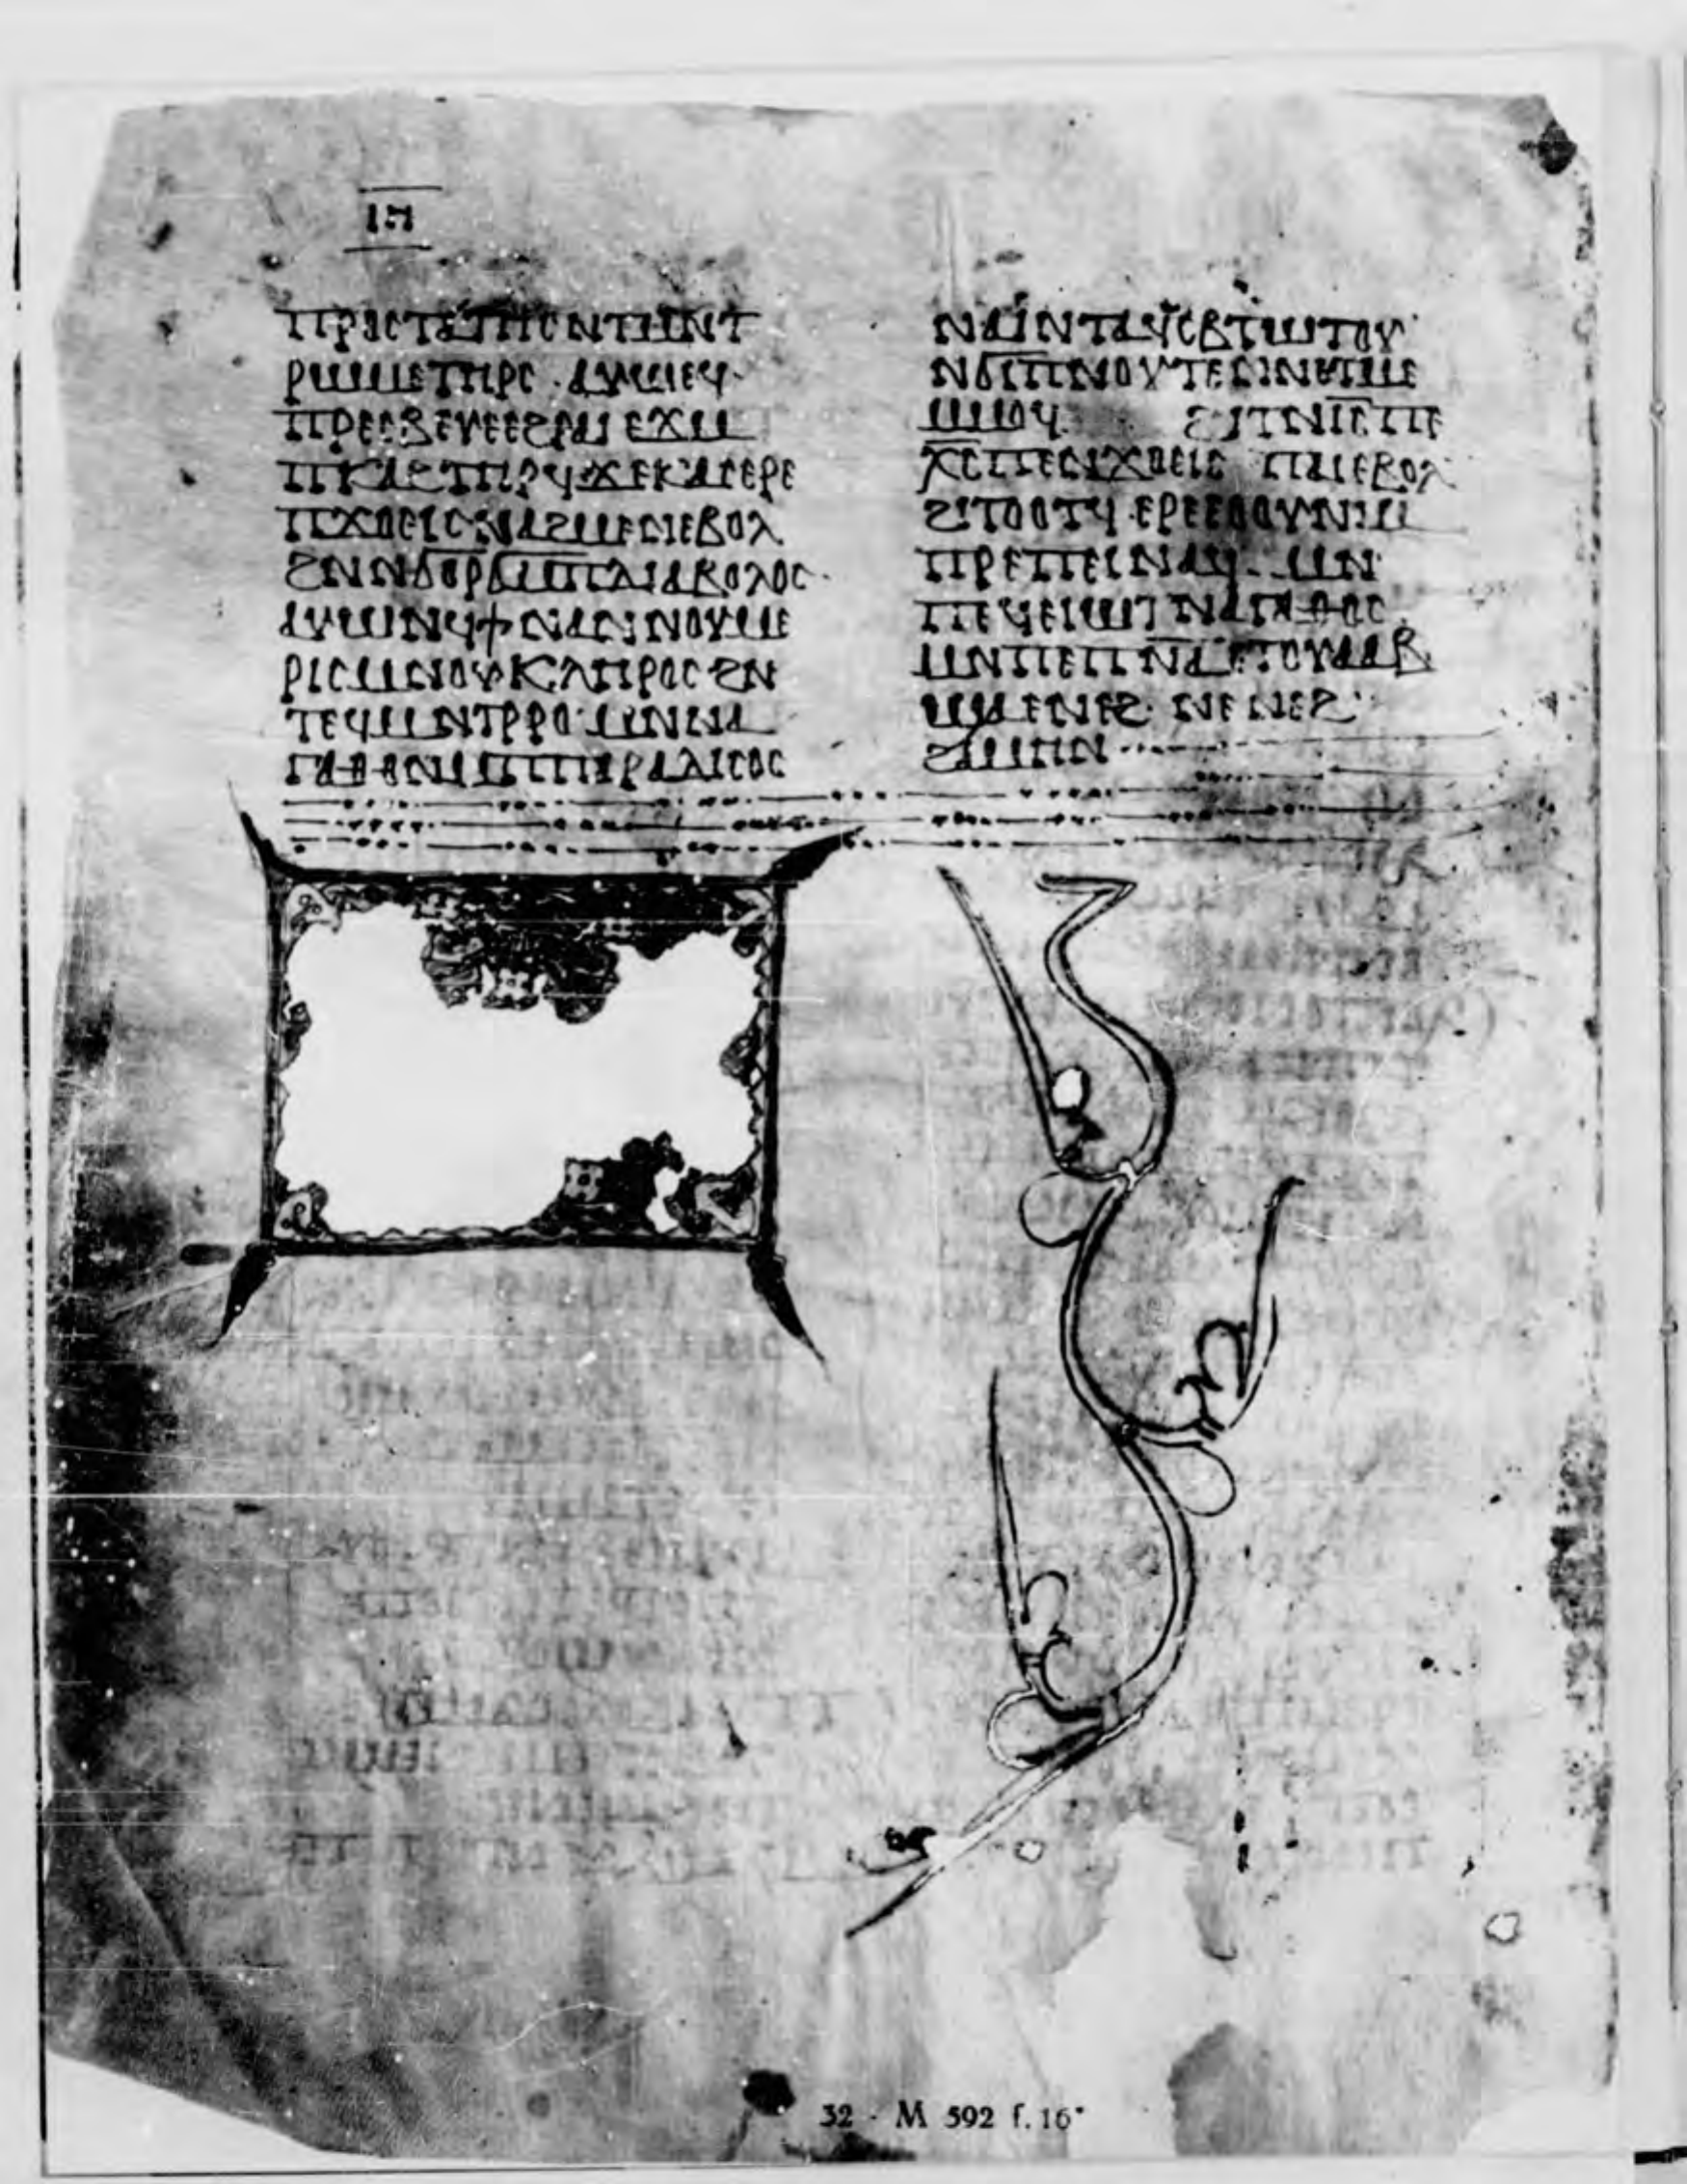 ⲓⲏ
ⲡⲣⲟⲥⲧⲁⲧⲏⲥ ⲛⲧⲙⲛⲧ
ⲣⲱⲙⲉ ⲧⲏⲣⲥ · ⲁⲩⲱ ⲛⲉϥ
ⲡⲣⲉⲥⲃⲉⲩⲉ ⲉϩⲣⲁⲓ ⲉϫⲙ
ⲡⲕⲁϩ ⲧⲏⲣϥ · ϫⲉⲕⲁⲥ ⲉⲣⲉ
ⲡϫⲟⲉⲓⲥ ⲛⲁϩⲙⲉⲛ ⲉⲃⲟⲗ
ϩⲛ ⲛϭⲟⲣϭⲥ̅ ⲙⲡⲇⲓⲁⲃⲟⲗⲟⲥ ·
ⲁⲩⲱ ⲛϥϯ ⲛⲁⲛ ⲛⲟⲩⲙⲉ
ⲣⲓⲥ ⲙⲛ ⲟⲩⲕⲗⲏⲣⲟⲥ ϩⲛ
ⲧⲉϥⲙⲛⲧⲣⲣⲟ · ⲙⲛ ⲛⲁ
ⲅⲁⲑⲟⲛ ⲙⲡⲡⲁⲣⲁⲇⲓⲥⲟⲥ
ⲛⲁⲓ ⲛⲧⲁϥⲥⲃⲧⲱⲧⲟⲩ
ⲛϭⲓ ⲡⲛⲟⲩⲧⲉ ⲛⲛⲉⲧⲙⲉ
ⲙⲙⲟϥ · ϩⲓⲧⲛ ⲓⲥ ⲡⲉ
ⲭⲥ̅ ⲡⲉⲛϫⲟⲉⲓⲥ ⲡⲁⲓ ⲉⲃⲟⲗ
ϩⲓⲧⲟⲟⲧϥ · ⲉⲣⲉ ⲉⲟⲟⲩ ⲛⲓⲙ
ⲡⲣⲉⲡⲉⲓ ⲛⲁϥ · ⲙⲛ
ⲡⲉϥⲉⲓⲱⲧ ⲛⲁⲅⲁⲑⲟⲥ ·
ⲙⲛ ⲡⲉⲡⲛ̅ⲁ̅ ⲉⲧⲟⲩⲁⲁⲃ
ϣⲁ ⲉⲛⲉϩ · ⲛⲉⲛⲉϩ
ϩⲁⲙⲏⲛ
32 · M 592 f. 16ᵛ